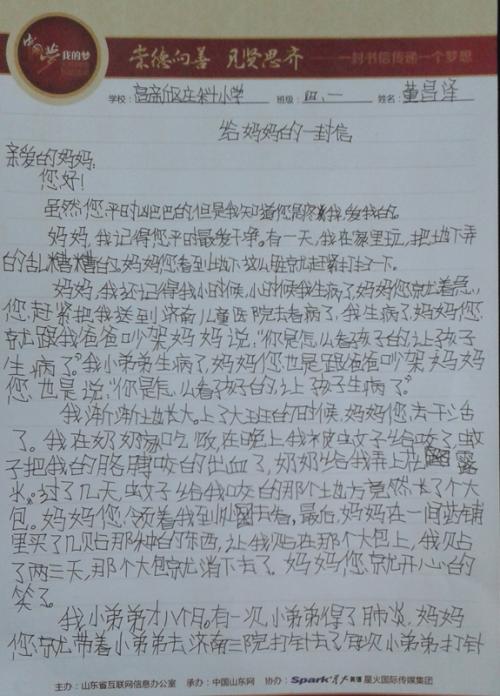 中国梦 我的梦
崇德向善 见贤思齐 一封书信传递一个梦想
学校：高新区庄科小学 班级：四、一 姓名：董昌泽
给妈妈的一封信
亲爱的妈妈：
您好！
虽然您平时凶巴巴的但是我知道您是疼我，爱我的。
妈妈，我记得您平时最爱干净。有一天，我在家里玩，把地下弄
的乱糟糟的，妈妈您看到地下这么脏就赶紧打扫一下。
妈妈，我还记得我小时候，小时候我生病了，妈妈您就着急，
您赶紧把我送到济南儿童医院去看病了，我生病了，妈妈您
就跟我爸爸吵架妈妈说，“你是怎么看孩子的，让孩子
生病了。”我小弟弟生病了，妈妈您也是跟爸爸吵架妈妈
您，也是说，“你是怎么看孩子的，让孩子生病了。”
我渐渐地长大。上了大班的时候，妈妈您去干活
了。我在奶奶家吃饭，在晚上我被蚊子给咬了，蚊
子把我的胳膊咬的出血了，奶奶给我弄上花露
水。过了几天，蚊子给我咬的那个地方竟然长了个大
包。妈妈您，领着我到处去看，最后，妈妈在一间店铺
里买了几贴那种的东西，让我贴在那个大包上，我贴
了两三天，那个大包就消下去了。妈妈您就开心的
笑了。
我小弟弟才八个月。有一次，小弟弟得了肺炎，妈妈
您就带着小弟弟去济南三院打针去了每次小弟弟打针
主办：山东省互联网信息办公室 承办：中国山东网 协办：Spark 星火英语 星火国际传媒集团